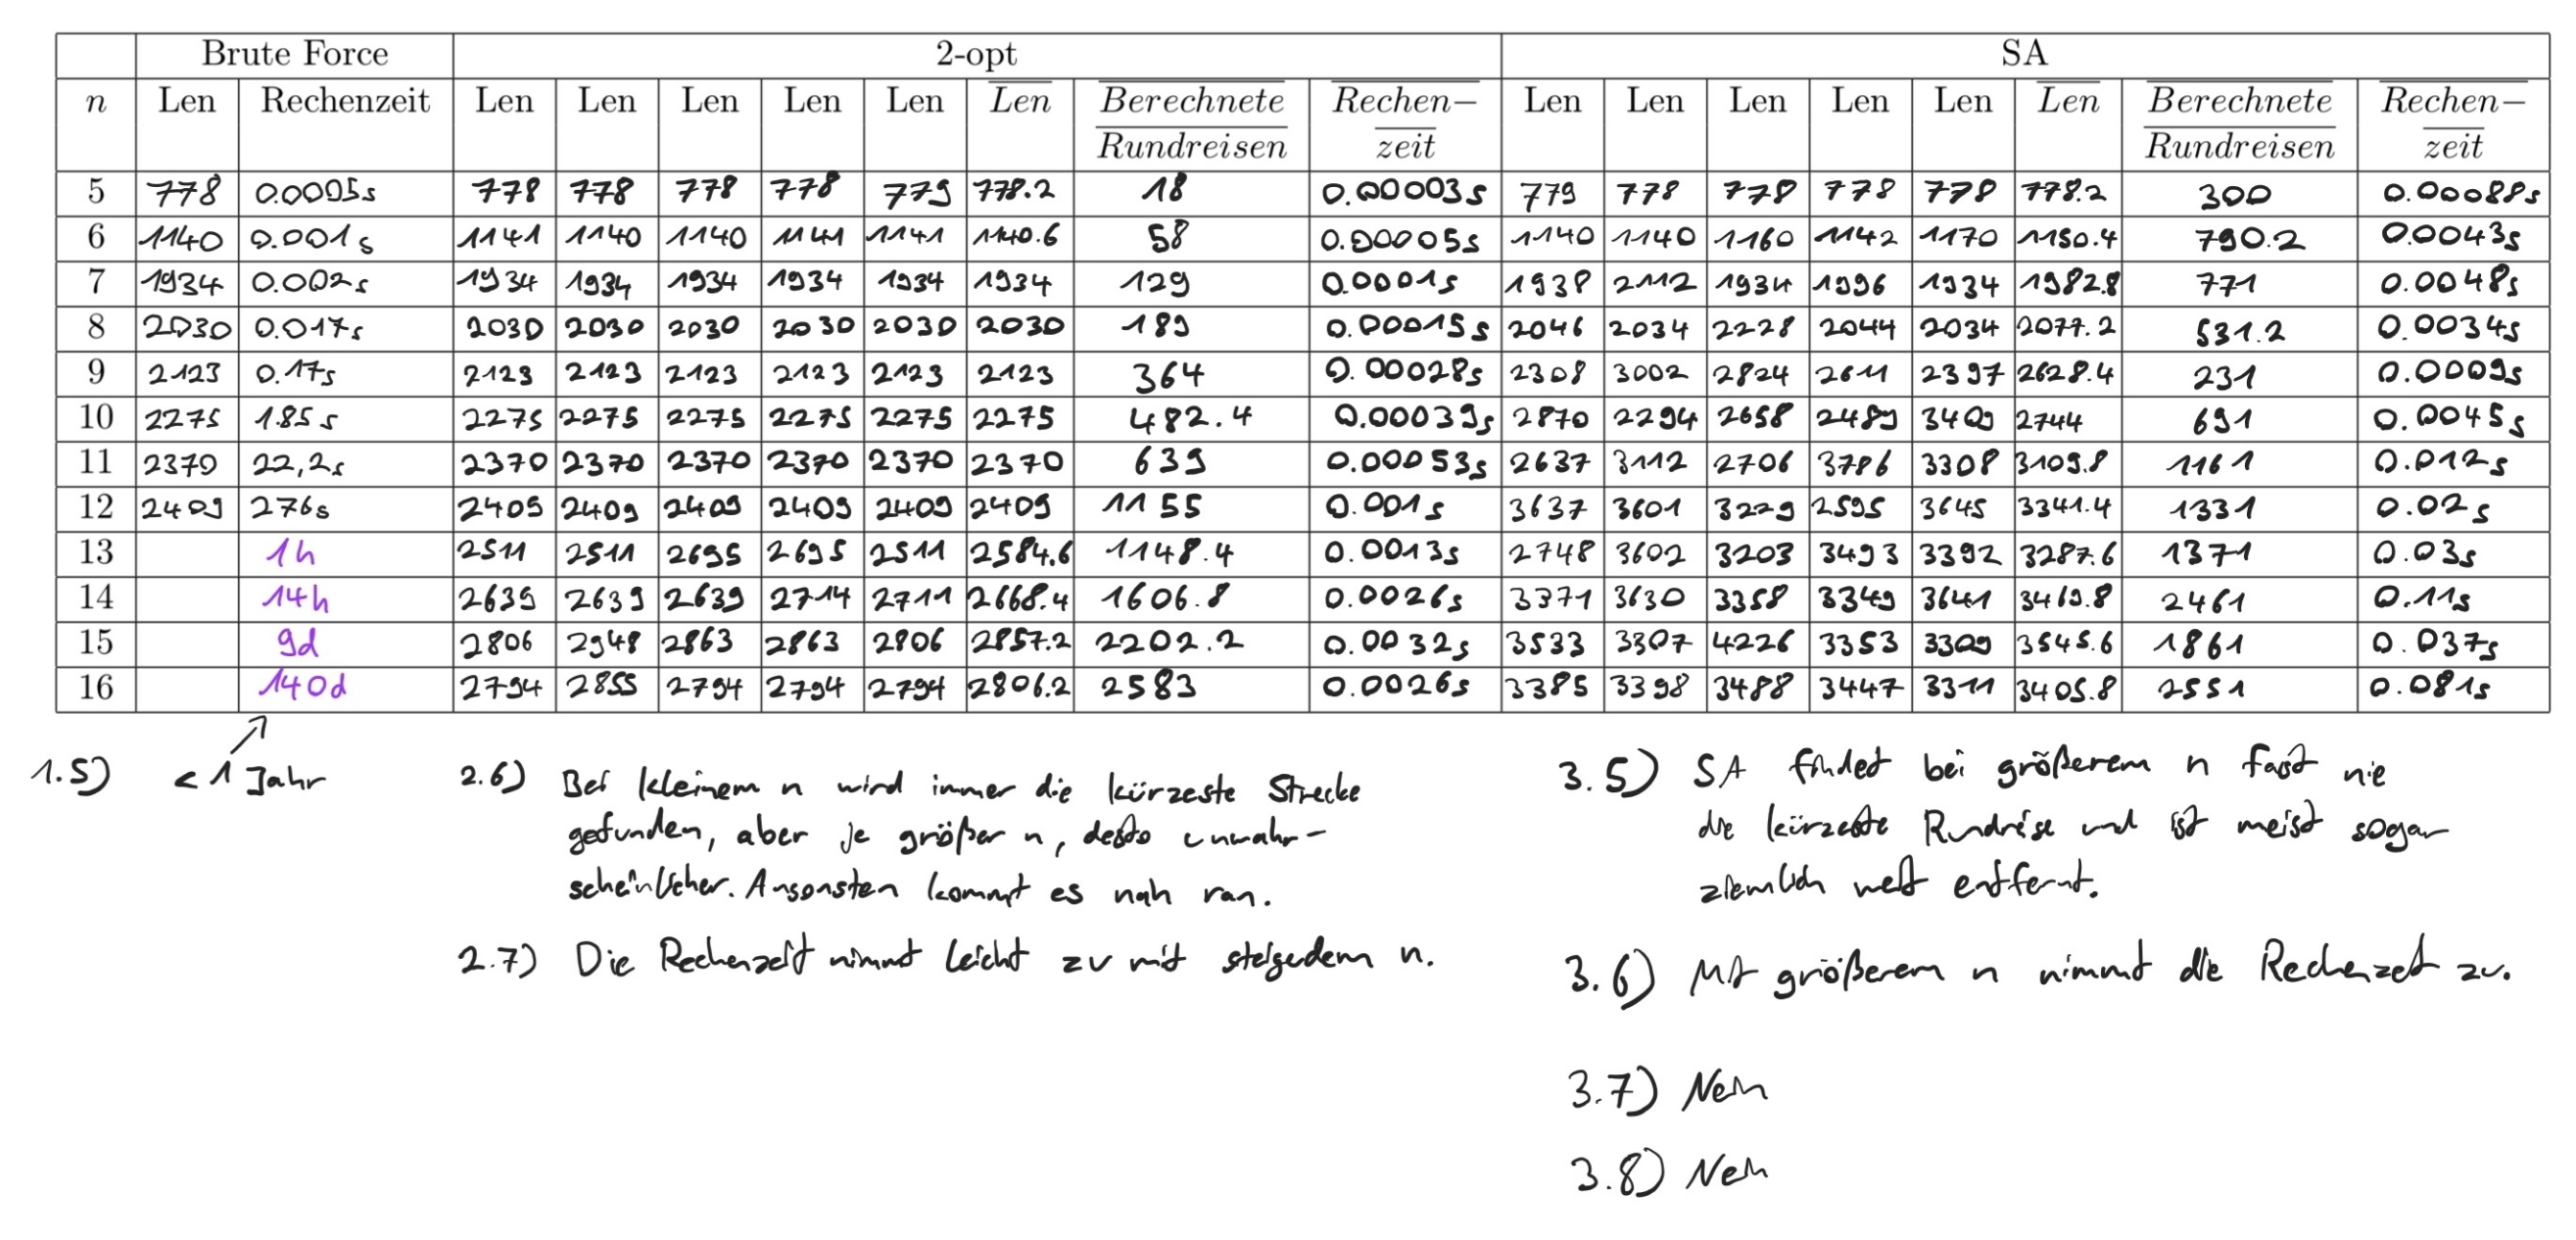 Brute Force 2-opt SA
n Len Rechenzeit Len Len Len Len Len Len Berechnete Rechen− Len Len Len Len Len Len Berechnete Rechen−
Rundreisen zeit Rundreisen zeit
5 778 0.0005s 778 778 778 778 779 778.2 18 0.00003s 779 778 778 778 778 778.2 300 0.00088s
6 1140 0.001s 1141 1140 1140 1141 1141 1140.6 58 0.00005s 1140 1140 1160 1142 1170 1150.4 790.2 0.0043s
7 1934 0.002s 1934 1934 1934 1934 1934 1934 129 0.0001s 1938 2112 1934 1996 1934 1982.8 771 0.0048s
8 2030 0.017s 2030 2030 2030 2030 2030 2030 189 0.00015s 2046 2034 2228 2044 2034 2077.2 531.2 0.0034s
9 2123 0.17s 2123 2123 2123 2123 2123 2123 364 0.00028s 2308 3002 2824 2611 2397 2628.4 231 0.0009s
10 2275 1.85s 2275 2275 2275 2275 2275 2275 482.4 0.00039s 2870 2294 2658 2489 3409 2744 691 0.0045s
11 2370 22,2s 2370 2370 2370 2370 2370 2370 639 0.00053s 2637 3112 2706 3786 3308 3109.8 1161 0.012s
12 2409 276s 2409 2409 2409 2409 2409 2409 1155 0.001s 3637 3601 3229 2595 3645 3341.4 1331 0.02s
13 1h 2511 2511 2695 2695 2511 2584.6 1148.4 0.0013s 2748 3602 3203 3493 3392 3287.6 1371 0.03s
14 14h 2639 2639 2639 2714 2711 2668.4 1606.8 0.0026s 3371 3630 3358 3349 3641 3469.8 2461 0.11s
15 9d 2806 2948 2863 2863 2806 2857.2 2202.2 0.0032s 3533 3307 4226 3353 3309 3545.6 1861 0.037s
16 140d 2794 2855 2794 2794 2794 2806.2 2583 0.0026s 3385 3398 3488 3447 3311 3405.8 2551 0.081s
1.5) < 1 Jahr
2.6) Bei kleinem n wird immer die kürzeste Strecke
gefunden, aber je größer n, desto unwahr-
scheinlicher. Ansonsten kommt es nah ran.
2.7) Die Rechenzeit nimmt leicht zu mit steigendem n.
3.5) SA findet bei größerem n fast nie
die kürzeste Rundreise und ist meist sogar
ziemlich weit entfernt.
3.6) Mit größerem n nimmt die Rechenzeit zu.
3.7) Nein
3.8) Nein